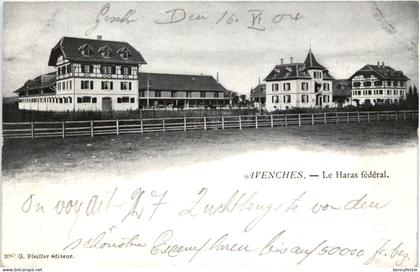 Gesch. Den 16. VI 04
AVENCHES. — Le Haras fédéral.
On voyait 27 Zuchthengste, von
schönsten Exemplaren bis auf 50000 fr.
G. Pfeiffer éditeur.
kenneyrees.ch